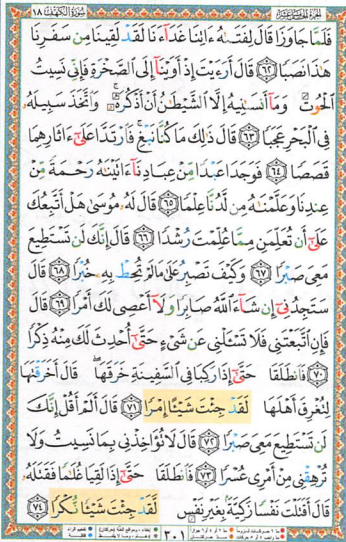 الجزء الخامس عشر سورة الكهف ١٨
فَلَمَّا جَاوَزَا قَالَ لِفَتَىٰهُ ءَاتِنَا غَدَآءَنَا لَقَدْ لَقِينَا مِن سَفَرِنَا
هَٰذَا نَصَبًا ۝٦٢ قَالَ أَرَءَيْتَ إِذْ أَوَيْنَآ إِلَى ٱلصَّخْرَةِ فَإِنِّى نَسِيتُ
ٱلْحُوتَ وَمَآ أَنسَىٰنِيهُ إِلَّا ٱلشَّيْطَٰنُ أَنْ أَذْكُرَهُۥ ۚ وَٱتَّخَذَ سَبِيلَهُۥ
فِى ٱلْبَحْرِ عَجَبًا ۝٦٣ قَالَ ذَٰلِكَ مَا كُنَّا نَبْغِ ۚ فَٱرْتَدَّا عَلَىٰٓ ءَاثَارِهِمَا
قَصَصًا ۝٦٤ فَوَجَدَا عَبْدًا مِّنْ عِبَادِنَآ ءَاتَيْنَٰهُ رَحْمَةً مِّنْ
عِندِنَا وَعَلَّمْنَٰهُ مِن لَّدُنَّا عِلْمًا ۝٦٥ قَالَ لَهُۥ مُوسَىٰ هَلْ أَتَّبِعُكَ
عَلَىٰٓ أَن تُعَلِّمَنِ مِمَّا عُلِّمْتَ رُشْدًا ۝٦٦ قَالَ إِنَّكَ لَن تَسْتَطِيعَ
مَعِىَ صَبْرًا ۝٦٧ وَكَيْفَ تَصْبِرُ عَلَىٰ مَا لَمْ تُحِطْ بِهِۦ خُبْرًا ۝٦٨ قَالَ
سَتَجِدُنِىٓ إِن شَآءَ ٱللَّهُ صَابِرًا وَلَآ أَعْصِى لَكَ أَمْرًا ۝٦٩ قَالَ
فَإِنِ ٱتَّبَعْتَنِى فَلَا تَسْـَٔلْنِى عَن شَىْءٍ حَتَّىٰٓ أُحْدِثَ لَكَ مِنْهُ ذِكْرًا
۝٧٠ فَٱنطَلَقَا حَتَّىٰٓ إِذَا رَكِبَا فِى ٱلسَّفِينَةِ خَرَقَهَا ۖ قَالَ أَخَرَقْتَهَا
لِتُغْرِقَ أَهْلَهَا لَقَدْ جِئْتَ شَيْـًٔا إِمْرًا ۝٧١ قَالَ أَلَمْ أَقُلْ إِنَّكَ
لَن تَسْتَطِيعَ مَعِىَ صَبْرًا ۝٧٢ قَالَ لَا تُؤَاخِذْنِى بِمَا نَسِيتُ وَلَا
تُرْهِقْنِى مِنْ أَمْرِى عُسْرًا ۝٧٣ فَٱنطَلَقَا حَتَّىٰٓ إِذَا لَقِيَا غُلَٰمًا فَقَتَلَهُۥ
قَالَ أَقَتَلْتَ نَفْسًا زَكِيَّةًۢ بِغَيْرِ نَفْسٍ لَّقَدْ جِئْتَ شَيْـًٔا نُّكْرًا ۝٧٤
٣٠١